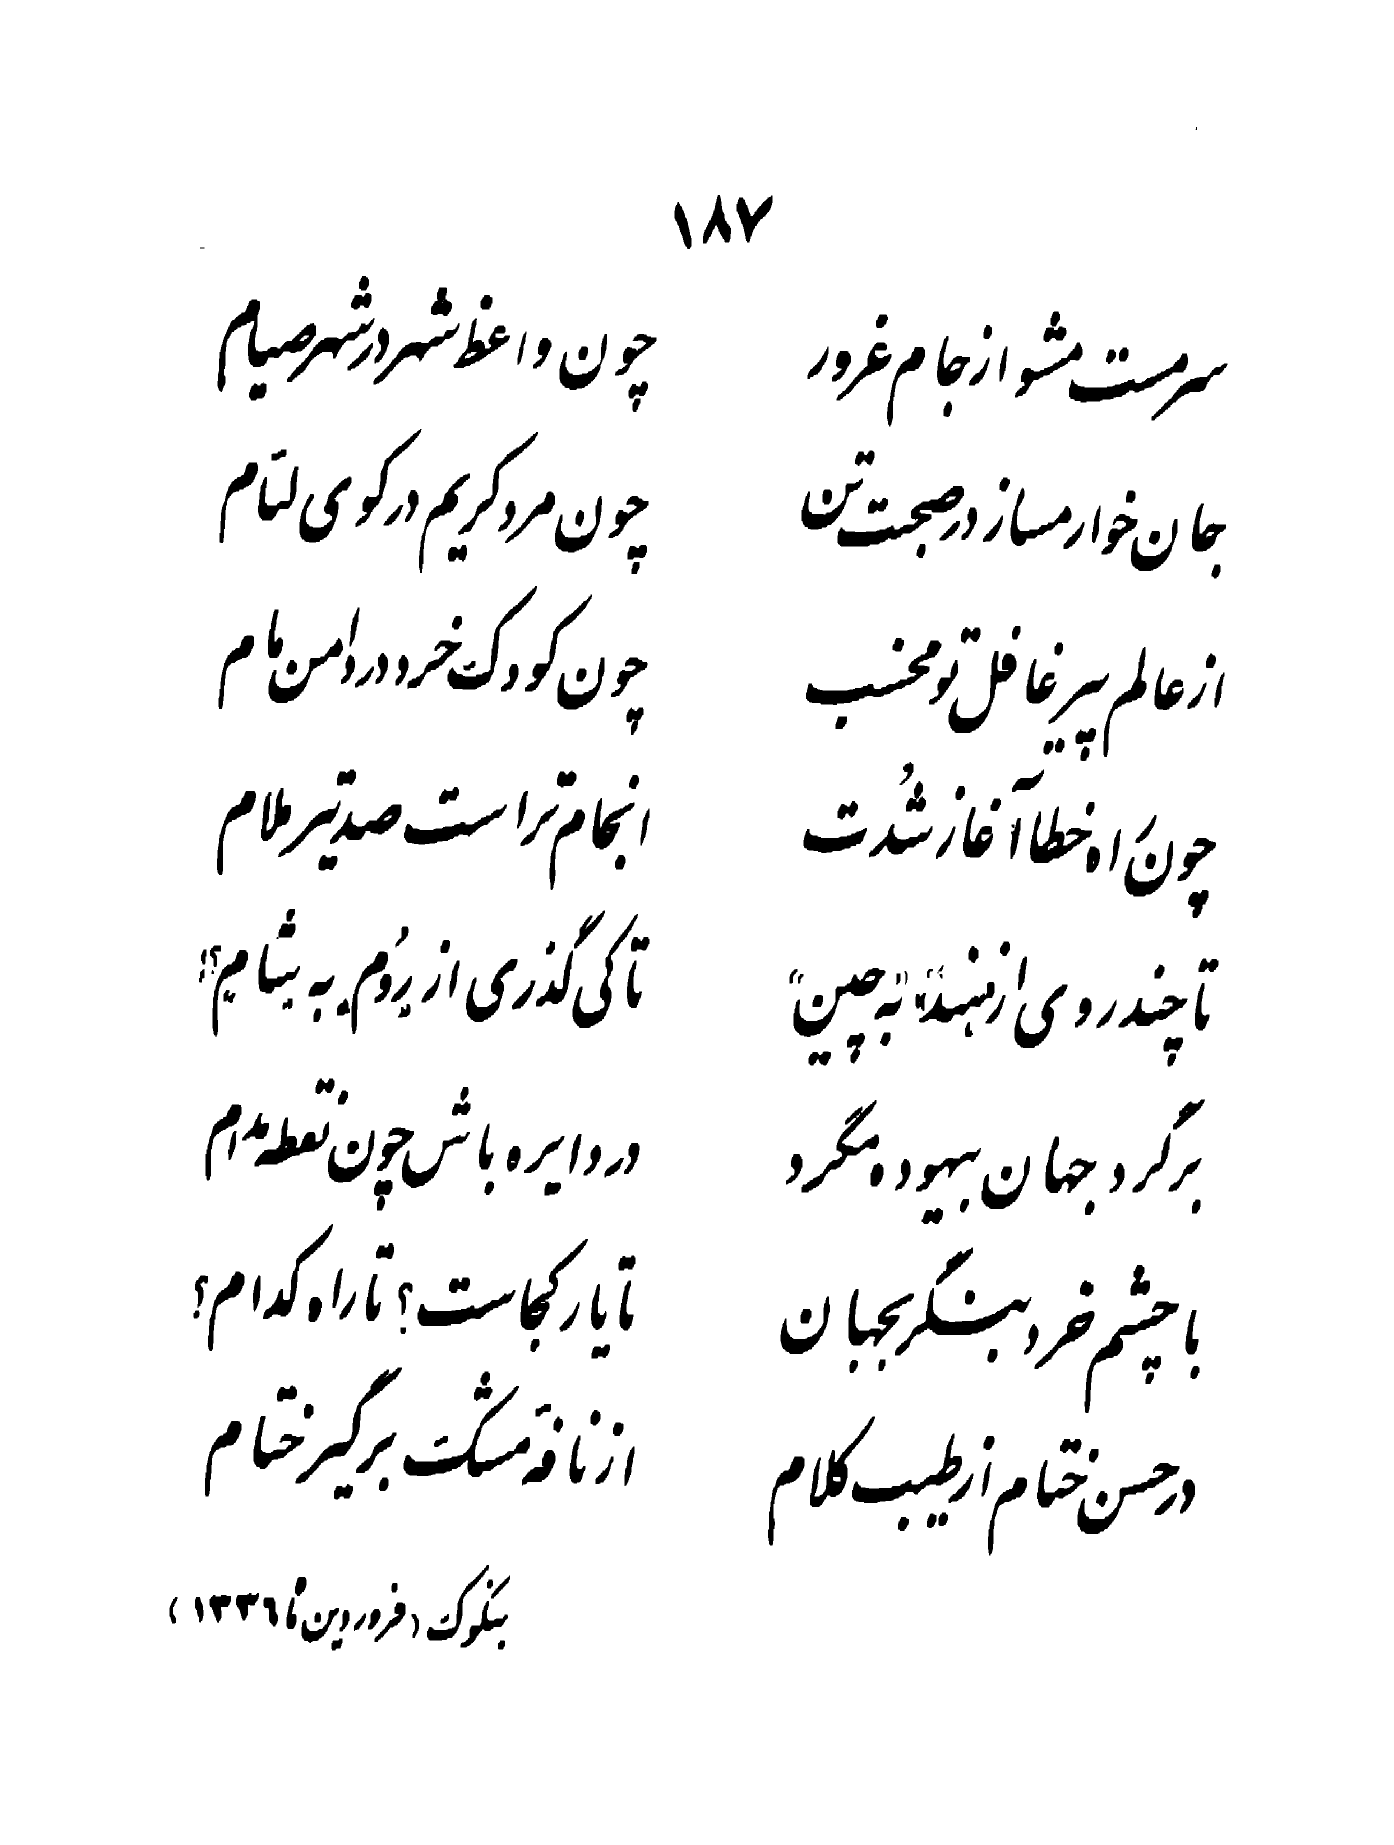 ۱۸۷
سرمست مشو از جام غرور چون واعظ شهر در شهر صیام
جان خوار مساز در صحبت تن چون مرد کریم در کوی لئام
از عالم پیر غافل تو مخسب چون کودک خرد در دامن مام
چون راه خطا آغاز شُدت انجام تراست صد تیر ملام
تا چند روی از «هند» «به چین» تا کی گذری از رُوم به بشام؟!
بر گرد جهان بیهوده مگرد در دایره باش چون نقطه مدام
با چشم خرد بنگر بجهان تا یار کجاست؟ تا راه کدام؟
در حسن ختام از طیب کلام از نافهٔ مشک برگیر ختام
بنکوک (فروردین ماه ۱۳۳۶)